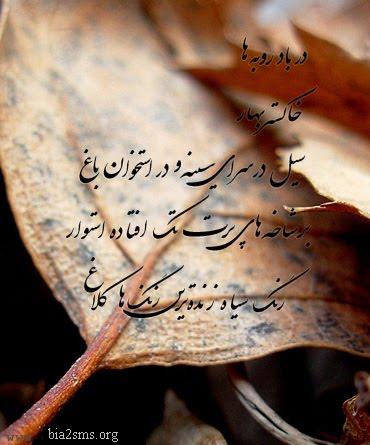 در باد روبه ها
خاکستر بهار
سیل در سرای سینه و در استخوان باغ
بر شاخه های پرت تک افتاده استوار
رنگ سیاه زنده ترین رنگ ها کلاغ
www.bia2sms.org